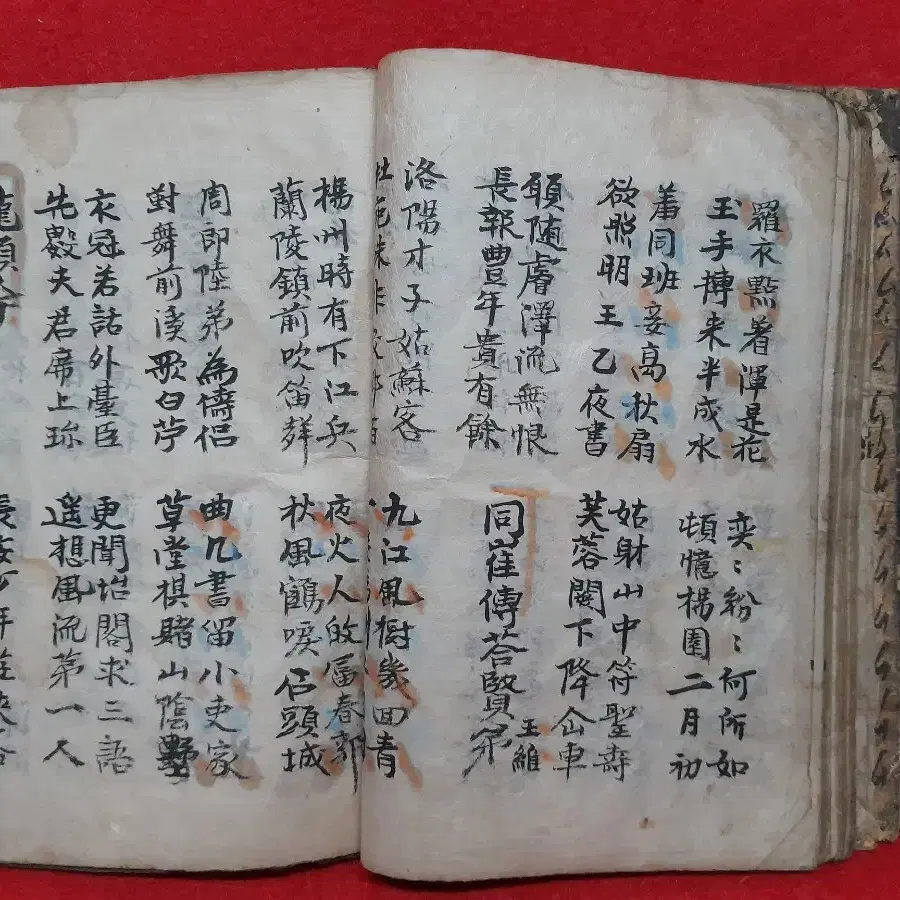 羅衣點着渾是花
玉手摶来半成水
奕〻紛〻何所如
頓憶楊園二月初
羞同班妾高秋扇
欲照明王乙夜書
姑射山中符聖壽
芙蓉闕下降仚車
願随膚澤流無恨
長報豊年貴有餘
同崔傳荅賢弟
王維
洛陽才子姑蘇客
九江風樹幾回青
楊州時有下江兵
蘭陵鎮前吹笛聲
夜火人㱕富春郭
秋風鶴唳石頭城
周即陸弟為儔侶
對舞前溪歌白苧
曲几書留小吏家
草堂棋賭山陰墅
衣冠若話外臺臣
先數夫君席上珎
更聞坮閣求三語
遥想風流第一人